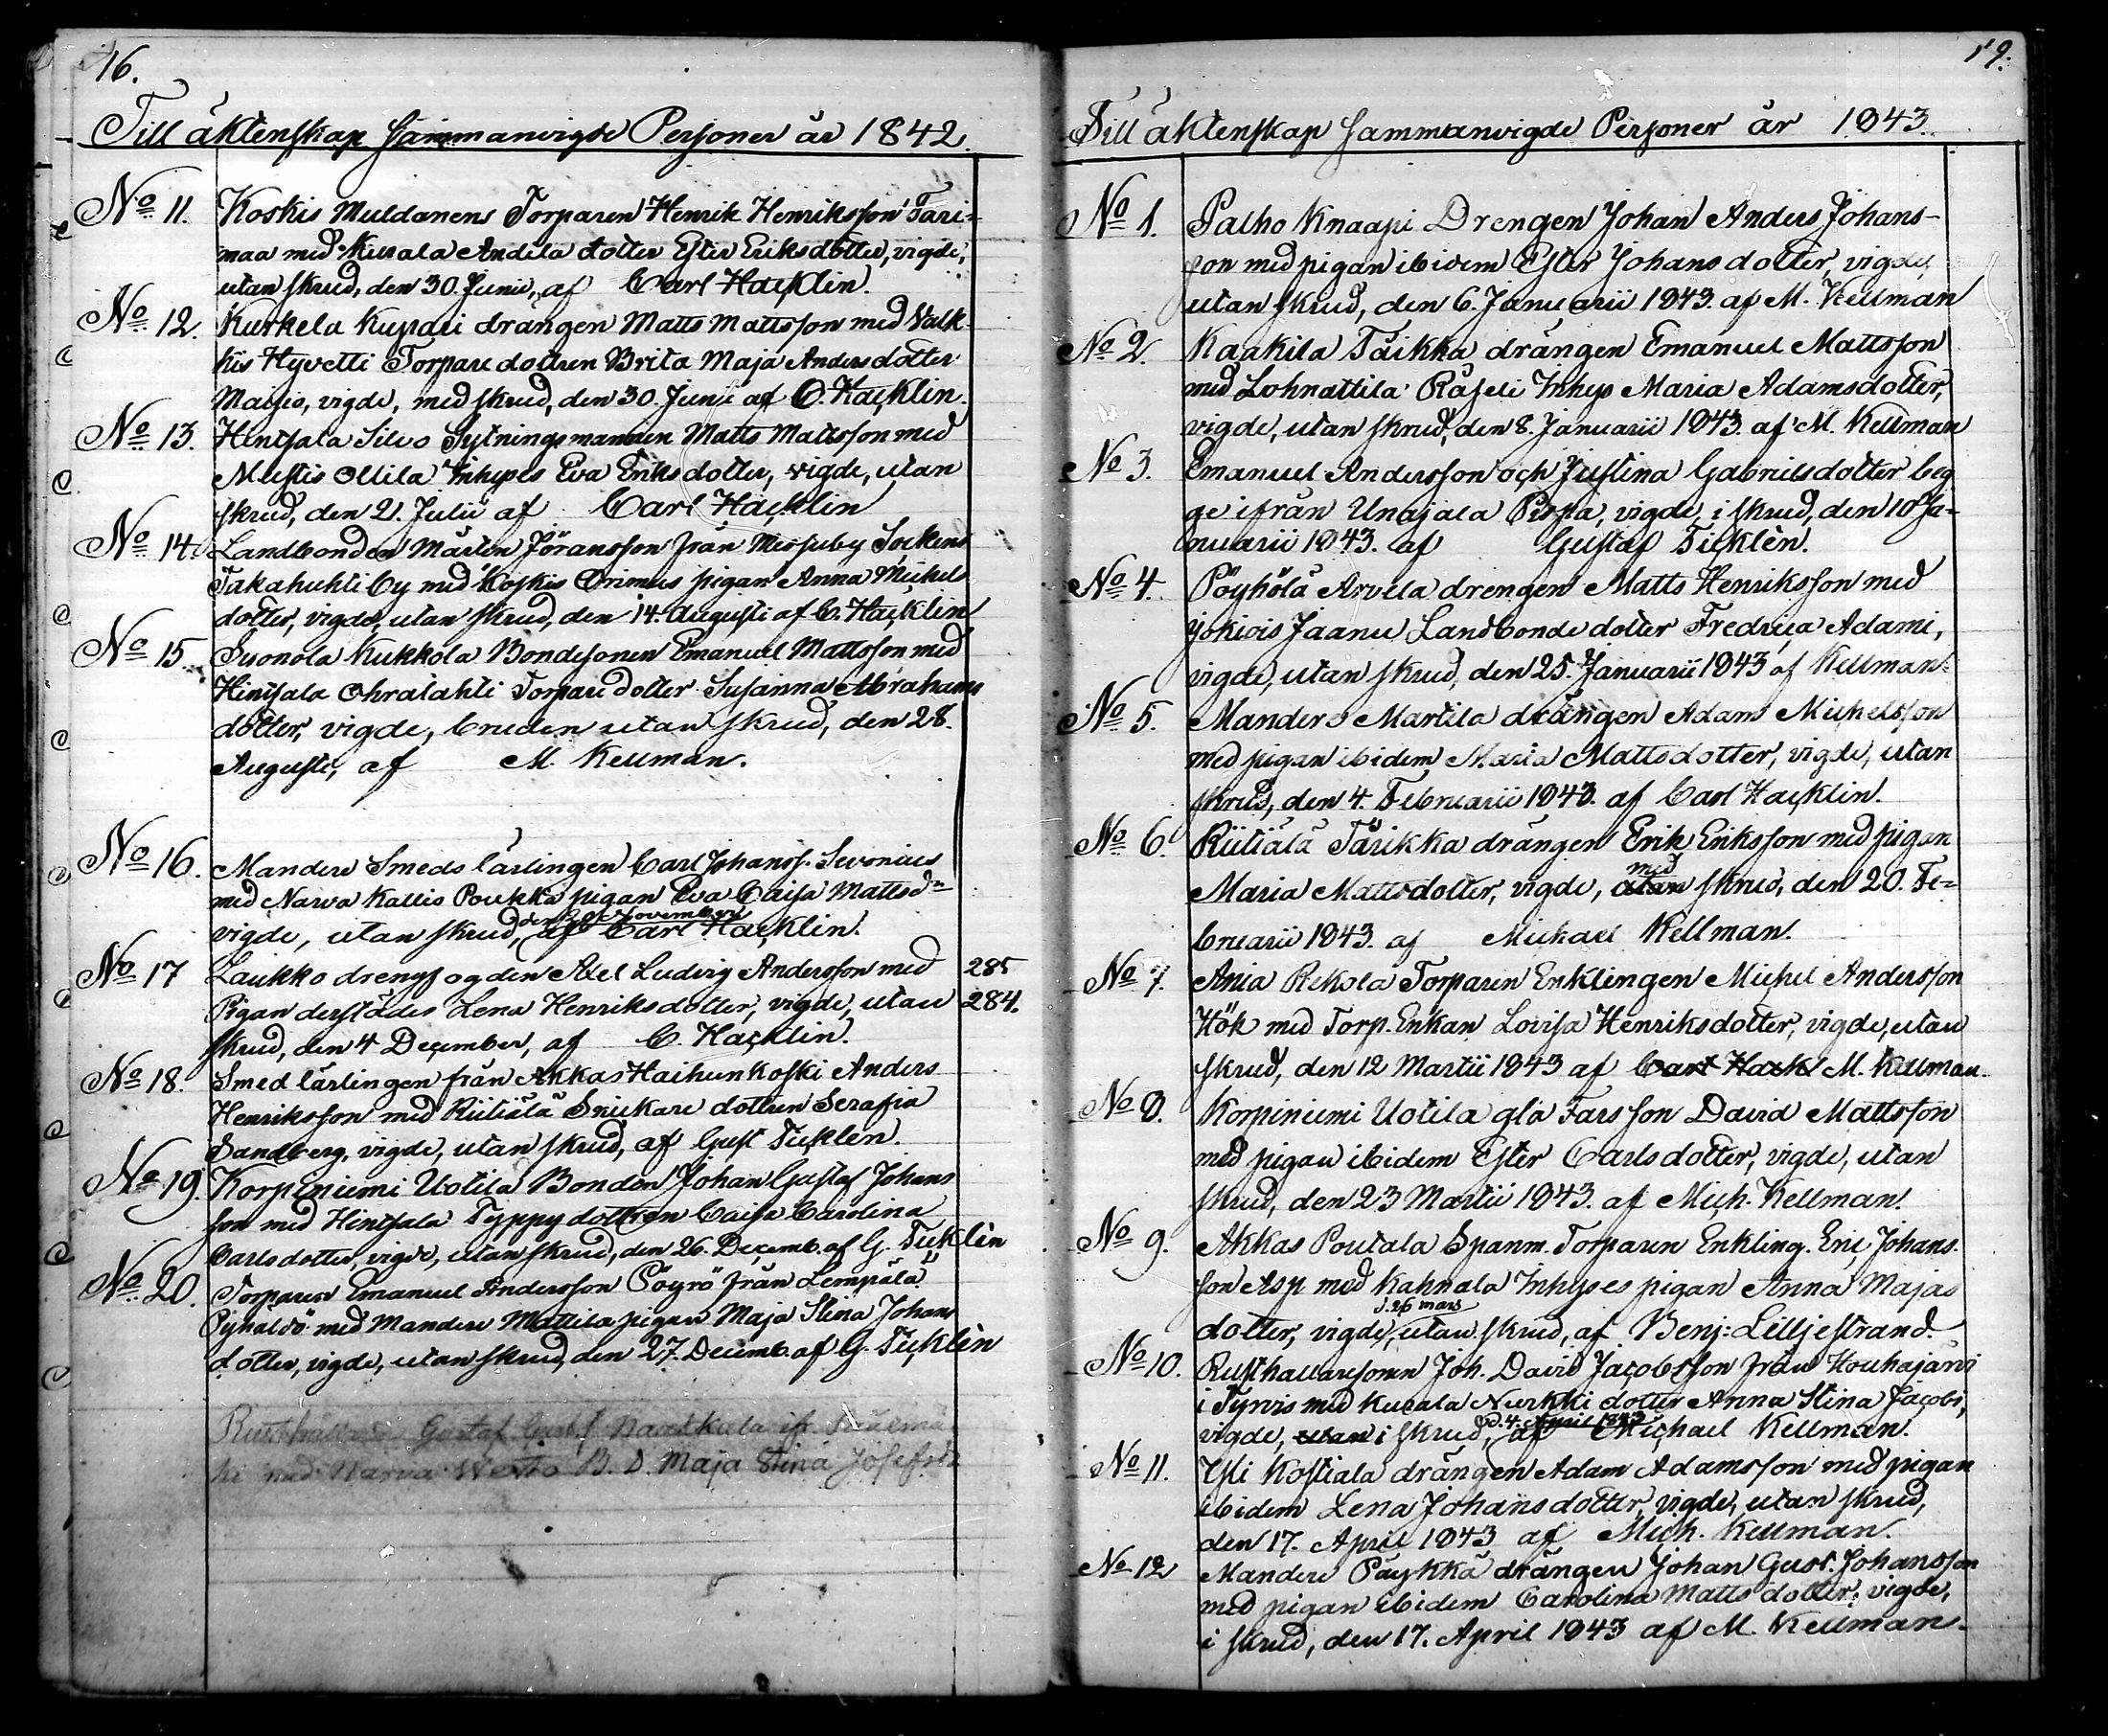 16.
Till äktenskap sammanvigde Personer år 1842.
No 11. Koskis Muldanens Torparen Henrik Henriksson Tari-
maa med Kurala Andela dotter Ester Eriksdotter, vigde,
utan skrud, den 30. Junii, af Carl Hacklin.
No 12. Kurkela Kuppari drängen Matts Mattsson med Valk-
kis Hyvetti Torpare dottren Brita Maja Andersdotter
vigde, med skrud, den 30. Junii af C. Hacklin.
No 13. Hintsala Silvo Sytningsmannen Matts Mattsson med
Mustis Ollila Inhyses Eva Eriksdotter, vigde, utan
skrud, den 21. Julii af Carl Hacklin
No 14. Landbonden Mårten Jöransson från Messuby Sockens
Takahuhti by med Koskis Orimus pigan Anna Michels
dotter, vigde, utan skrud, den 14. Augusti af C. Hacklin
No 15 Suonola Kukkola Bondesonen Emanuel Mattsson med
Hintsala Ohralahti Torpare dotter Susanna Abrahams
dotter, vigde, bruden utan skrud, den 28.
Augusti, af M. Kellman.
No 16. Mandere Smeds lärlingen Carl Johanss. Sevonius
med Narva Kallis Poukka pigan Eva Caisa Mattsdr
den 20 November
vigde, utan skrud, af Carl Hacklin.
No 17 Laukko drengsogden Axel Ludvig Andersson med 285
Pigan derstädes Lena Henriksdotter, vigde, utan 284.
skrud, den 4 December, af C. Hacklin.
No 18. Smed lärlingen från Akkas Haihunkoski Anders
Henriksson med Riitiälä Snickare dottren Serafia
Sandberg, vigde, utan skrud, af Gust Ticklén.
No 19. Korpiniemi Uotila Bonden Johan Gustaf Johans
son med Hintsala Typpy dottren Caisa Carolina
Carlsdotter, vigde, utan skrud, den 26. Decemb. af G. Ticklén
No 20. Torparen Emanuel Andersson Pöyrö från Lempälä
Pyhäldö med Mandere Mattila pigan Maja Stina Johans
dotter, vigde, utan skrud, den 27. Decemb. af G. Ticklén
Rusthållaren Gustaf Gust.s Nautkala ifr.
ki med Narva Westo B. D. Maja Stina Josefsd.
19.
Till äktenskap sammanvigde Personer år 1843.
No 1. Palho Knaapi Drengen Johan Anders Johans-
son med pigan ibidem Ester Johansdotter, vigde,
utan skrud, den 6. Januarii 1843. af M. Kellman
No 2. Kaakila Täikkä drängen Emanuel Mattsson
med Lohnattila Räfeli Inhys Maria Adamsdotter,
vigde, utan skrud, den 8. Januarii 1843. af M. Kellman
No 3. Emanuel Andersson och Justina Gabrielsdotter beg
ge ifrån Unajala Pispa, vigde, i skrud, den 10 Ja-
nuarii 1843. af Gustaf Ticklén.
No 4. Pöyhölä Arvela drengen Matts Henriksson med
Jokiois Jaanu Landbonde dotter Fredrica Adami,
vigde, utan skrud, den 25. Januarii 1843 af Kellman.
No 5. Mandere Martila drängen Adam Michelsson
med pigan ibidem Maria Mattsdotter, vigde, utan
skrud, den 4. Februarii 1843. af Carl Hacklin.
No 6. Riitiälä Tärikkä drängen Erik Eriksson med pigan
med
Maria Mattsdotter, vigde, utan skrud, den 20. Fe-
bruarii 1843. af Michael Kellman.
No 7. Ania Rekola Torparen Enklingen Michel Andersson
Hök med Torp. Enkan Lovisa Henriksdotter, vigde, utan
skrud, den 12 Martii 1843 af Carl Hack M. Kellman.
No 8. Korpiniemi Uotila gla Farsson David Mattsson
med pigan ibidem Ester Carlsdotter, vigde, utan
skrud, den 23 Martii 1843. af Mich. Kellman.
No 9. Akkas Poutala Spanm. Torparen Enkling. Eric Johans-
son Asp med Kahnala Inhyses pigan Anna Majas
d. 26 mars
dotter, vigde, utan skrud, af Benj: Lilljestrand.
No 10. Rusthallaresonen Joh. David Jacobsson från Houhajärvi
i Tyrvis med Kurala Nurkki dotter Anna Stina Jacobs,
d. 4. April 1843
vigde, utan i skrud, af Michael Kellman.
No 11. Yli Kostiala drängen Adam Adamsson med pigan
ibidem Lena Johansdotter, vigde, utan skrud,
den 17. April 1843 af Mich. Kellman.
No 12 Mandere Päykkä drängen Johan Gust. Johansson
med pigan ibidem Carolina Mattsdotter, vigde,
i skrud, den 17. April 1843 af M. Kellman.